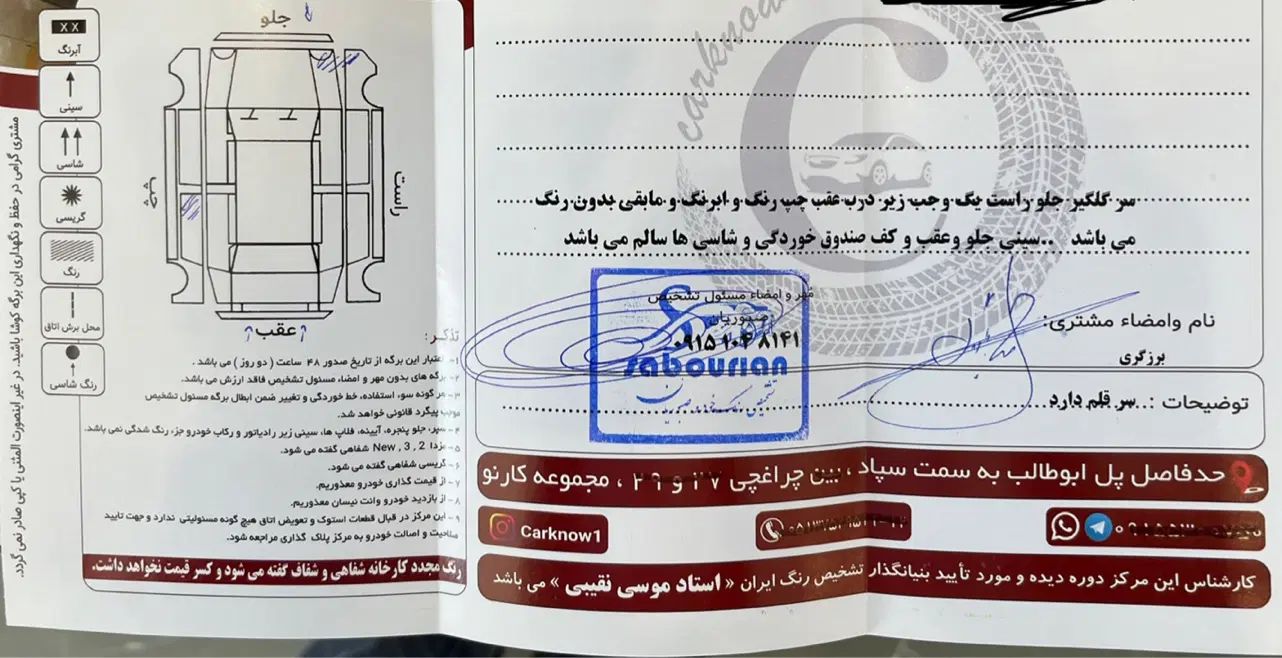 جلو
X X
آبرنگ
سینی
شاسی
گریسی
رنگ
محل برش اتاق
رنگ شاسی
چپ
راست
عقب
مشتری گرامی در حفظ و نگهداری این برگه کوشا باشید، در غیر اینصورت المثنی یا کپی صادر نمی گردد.
سر گلگیر جلو راست یک وجب زیر درب عقب چپ رنگ و ابرنگ و مابقی بدون رنگ
می باشد ..سینی جلو وعقب و کف صندوق خوردگی و شاسی ها سالم می باشد
مهر و امضاء مسئول تشخیص
صبوریان
۰۹۱۵ ۱۰۴ ۸۱۴۱
sabourian
نام وامضاء مشتری:
برزگری
توضیحات : سر قلم دارد
تذکر :
۱- اعتبار این برگه از تاریخ صدور ۴۸ ساعت ( دو روز ) می باشد .
۲- برگه های بدون مهر و امضاء مسئول تشخیص فاقد ارزش می باشد.
۳- هر گونه سوء استفاده، خط خوردگی و تغییر ضمن ابطال برگه مسئول تشخیص
موجب پیگرد قانونی خواهد شد.
۴- سپر، جلو پنجره، آیینه، فلاپ ها، سینی زیر رادیاتور و رکاب خودرو جزء رنگ شدگی نمی باشد.
۵- مزدا 2 , 3 , New شفاهی گفته می شود.
۶- گریسی شفاهی گفته می شود.
۷- از قیمت گذاری خودرو معذوریم.
۸- از بازدید خودرو وانت نیسان معذوریم.
۹- این مرکز در قبال قطعات استوک و تعویض اتاق هیچ گونه مسئولیتی ندارد و جهت تایید
سلامیت و اصالت خودرو به مرکز پلاک گذاری مراجعه شود.
رنگ مجدد کارخانه شفاهی و شفاف گفته می شود و کسر قیمت نخواهد داشت.
حدفاصل پل ابوطالب به سمت سپاد ، بین چراغچی ۲۷ و ۲۹ ، مجموعه کارنو
Carknow1
کارشناس این مرکز دوره دیده و مورد تأیید بنیانگذار تشخیص رنگ ایران « استاد موسی نقیبی » می باشد